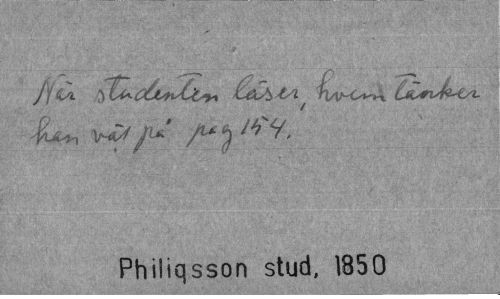 När studenten läser, hvem tänker
han väl på pag 154.
Philiqsson stud, 1850